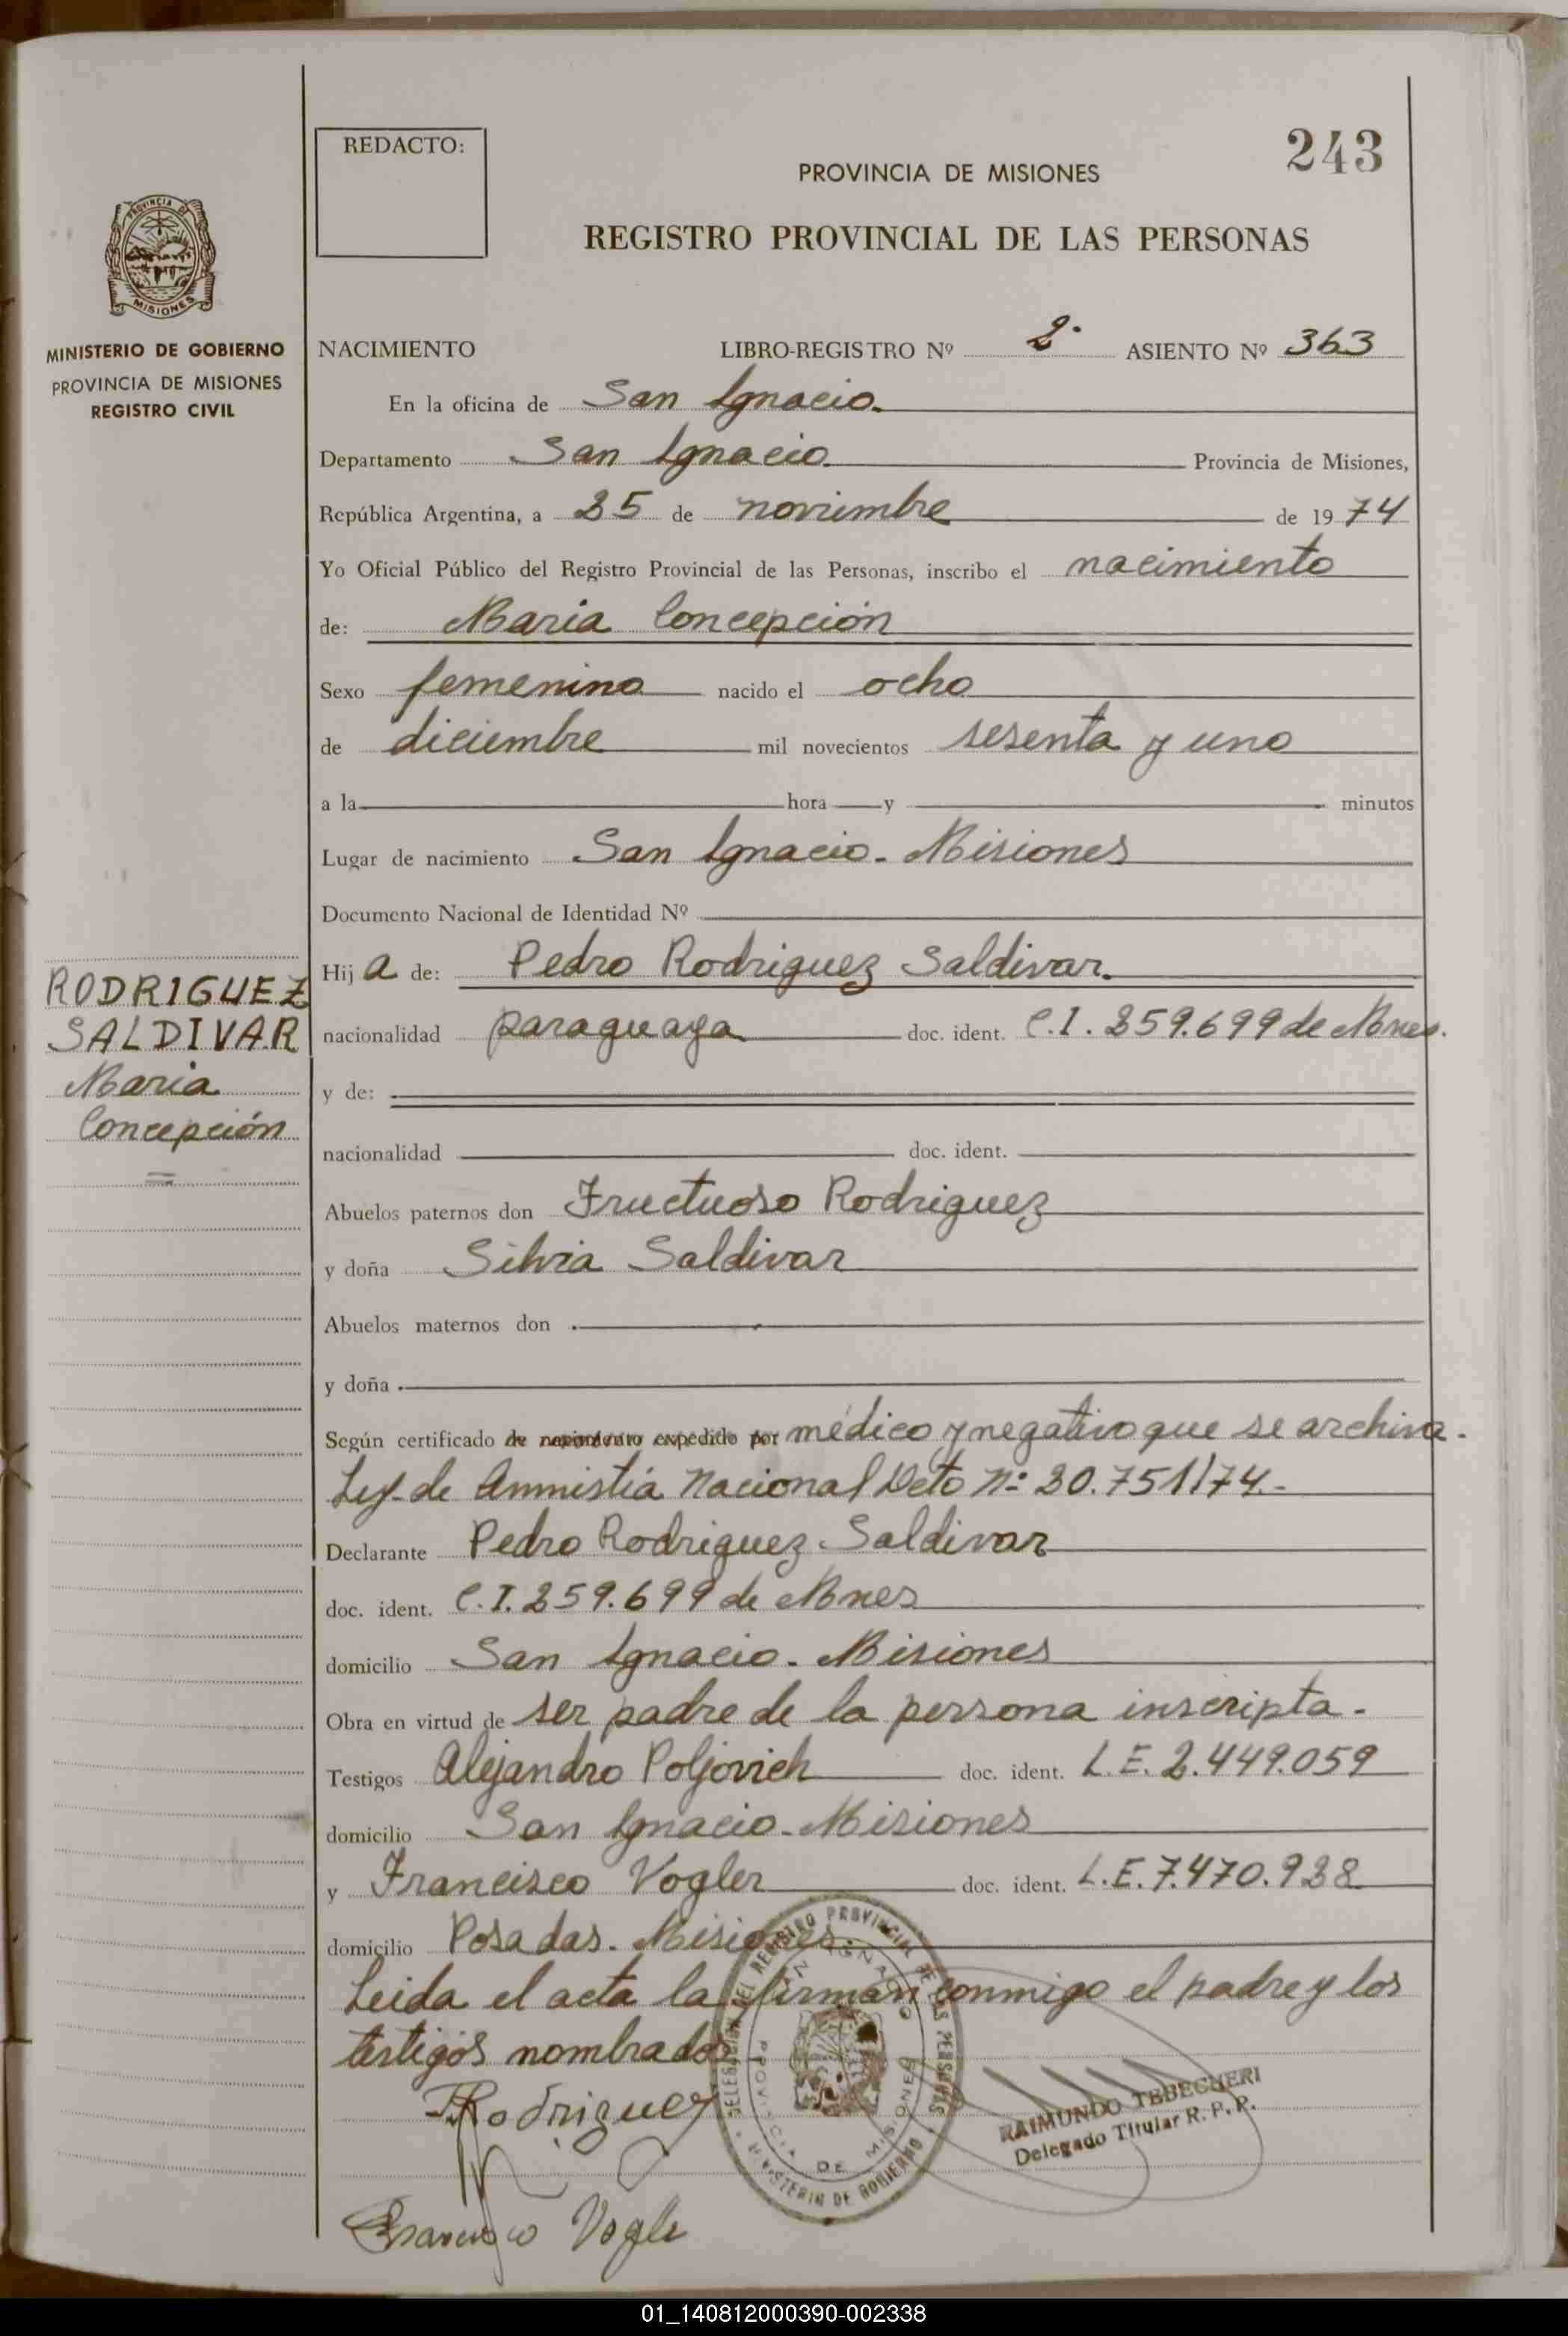 243
REDACTO:
PROVINCIA DE MISIONES
REGISTRO PROVINCIAL DE LAS PERSONAS
PROVINCIA DE
MISIONES
MINISTERIO DE GOBIERNO
PROVINCIA DE MISIONES
REGISTRO CIVIL
NACIMIENTO LIBRO-REGISTRO Nº 2º ASIENTO Nº 363
En la oficina de San Ignacio.
Departamento San Ignacio Provincia de Misiones,
República Argentina, a 25 de noviembre de 19 74
Yo Oficial Público del Registro Provincial de las Personas, inscribo el nacimiento
de: Maria Concepción
Sexo femenino nacido el ocho
de diciembre mil novecientos sesenta y uno
a la hora y minutos
Lugar de nacimiento San Ignacio - Misiones
Documento Nacional de Identidad Nº
Hij a de: Pedro Rodriguez Saldivar.
nacionalidad paraguaya doc. ident. C.I. 259.699 de Mnes.
y de:
nacionalidad doc. ident.
RODRIGUEZ
SALDIVAR
Maria
Concepción
Abuelos paternos don Fructuoso Rodriguez
y doña Silvia Saldivar
Abuelos maternos don
y doña
Según certificado de nacimiento expedido por médico y negativo que se archiva.
Ley de Amnistia Nacional Dcto Nº 20.751/74.-
Declarante Pedro Rodriguez Saldivar
doc. ident. C.I. 259.699 de Mnes
domicilio San Ignacio - Misiones
Obra en virtud de ser padre de la persona inscripta.-
Testigos Alejandro Poljovich doc. ident. L.E. 2.449.059
domicilio San Ignacio - Misiones
y Francisco Vogler doc. ident. L.E. 7.470.928
domicilio Posadas. Misiones.
Leida el acta la firman conmigo el padre y los
testigos nombrados
DELEGACION DEL REGISTRO PROVINCIAL DE LAS PERSONAS
SAN IGNACIO
PROVINCIA DE MISIONES
MINISTERIO DE GOBIERNO
PRodriguez
RAIMUNDO TEBECHERI
Delegado Titular R. P. P.
Francisco Vogler
01_140812000390-002338